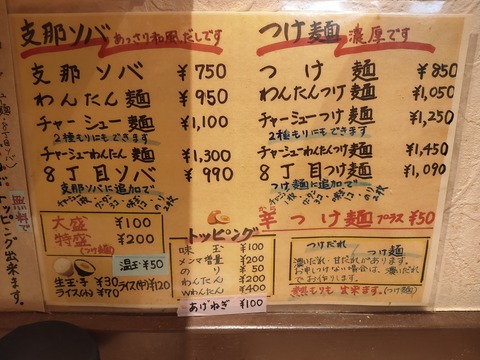 支那ソバ あっさり和風だしです
支那ソバ ¥750
わんたん麺 ¥950
チャーシュー麺 ¥1,100
2種もりにもできます
チャーシューわんたん麺 ¥1,300
8丁目ソバ ¥990
支那ソバに追加で
つけ麺 濃厚です
つけ麺 ¥850
わんたんつけ麺 ¥1,050
チャーシューつけ麺 ¥1,250
2種もりにもできます
チャーシューわんたんつけ麺 ¥1,450
8丁目つけ麺 ¥1,090
つけ麺に追加で
辛つけ麺 プラス ¥50
大盛 ¥100
特盛 ¥200
(つけ麺)
温玉 ¥50
生玉子 ¥30
ライス(小) ¥70
ライス(中) ¥120
トッピング
味玉 ¥100
メンマ増量 ¥200
のり ¥50
わんたん ¥200
Wわんたん ¥400
あげねぎ ¥100
つけだれ
つけ麺
濃いだれ・甘だれが あります。
お申しつけない場合は、濃いだれ
でお作りします。
熱もりも出来ます。(つけ麺)
無料で
トッピング出来ます。